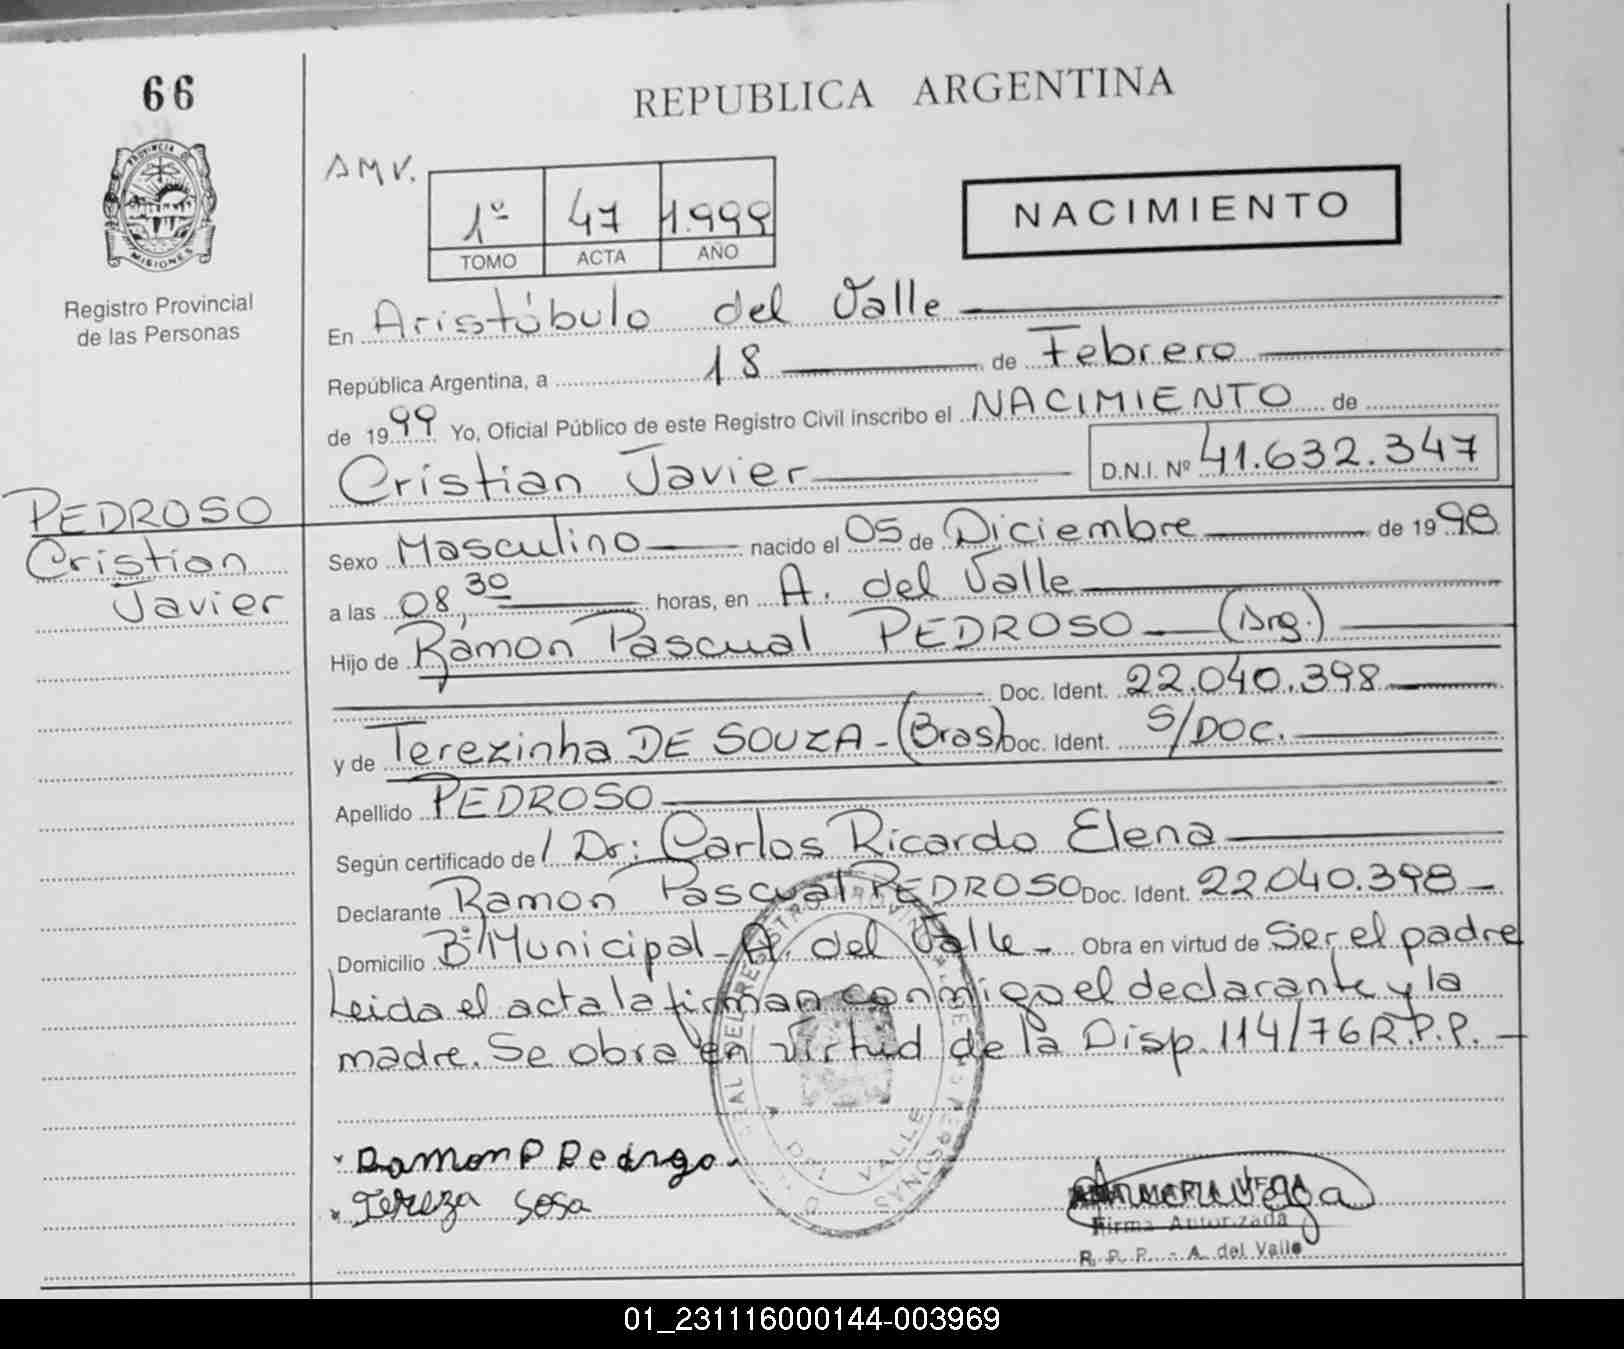 66
REPUBLICA ARGENTINA
PROVINCIA DE
MISIONES
Registro Provincial
de las Personas
AMV.
1º 47 1.999
TOMO ACTA AÑO
NACIMIENTO
En Aristóbulo del Valle
República Argentina, a 18 de Febrero
de 1999 Yo, Oficial Público de este Registro Civil inscribo el NACIMIENTO de
Cristian Javier D.N.I. Nº 41.632.347
PEDROSO
Cristian
Javier
Sexo Masculino nacido el 05 de Diciembre de 1998
a las 08,30 horas, en A. del Valle
Hijo de Ramon Pascual PEDROSO (Arg.)
Doc. Ident. 22.040.398
y de Terezinha DE SOUZA - (Bras) Doc. Ident. S/DOC.
Apellido PEDROSO
Según certificado de / Dr: Carlos Ricardo Elena
Declarante Ramon Pascual PEDROSO Doc. Ident. 22.040.398 -
Domicilio Bº Municipal - A. del Valle - Obra en virtud de Ser el padre
Leida el acta la firman conmigo el declarante y la
madre. Se obra en virtud de la Disp. 114/76 R.P.P. -
Ramon P
Tereza Sosa
Vega
Firma Autorizada
R. P. P. - A. del Valle
DEL VALLE
01_231116000144-003969